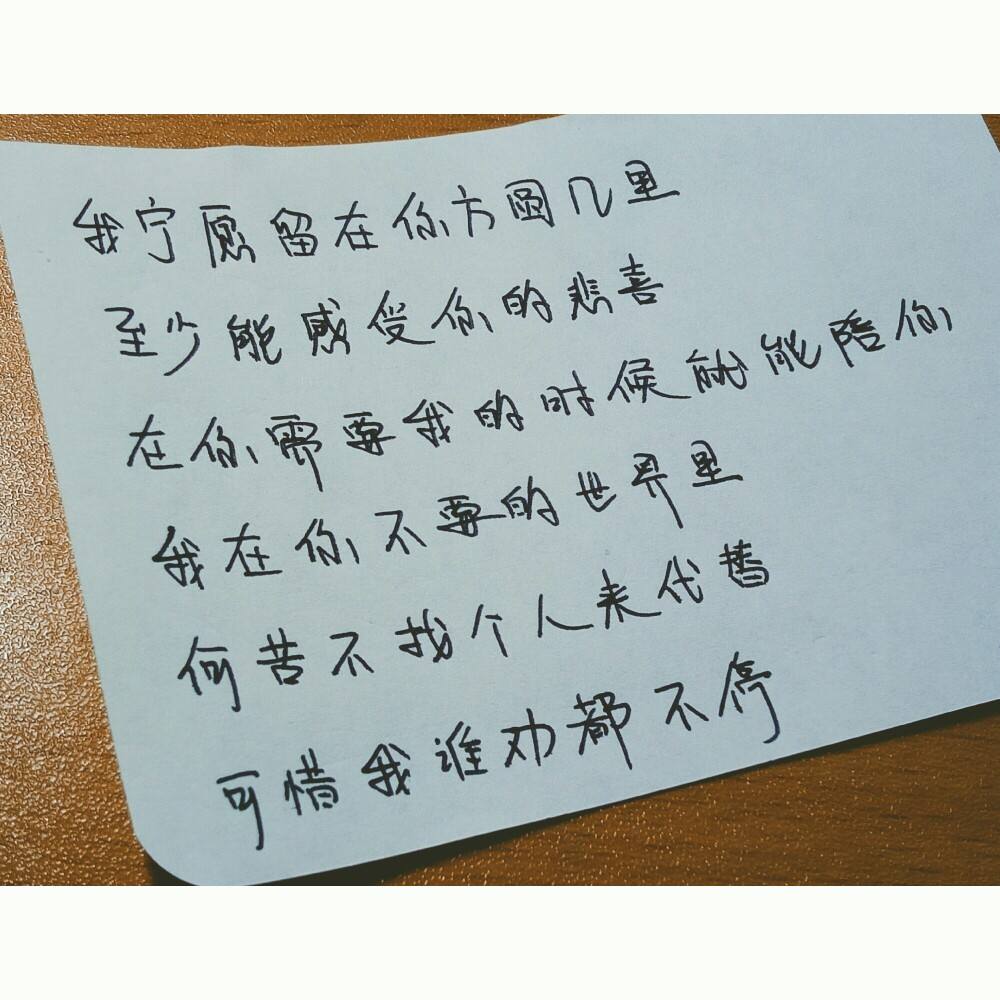 我宁愿留在你方圆几里
至少能感受你的悲喜
在你需要我的时候就能陪你
我在你不要的世界里
何苦不找个人来代替
可惜我谁劝都不停